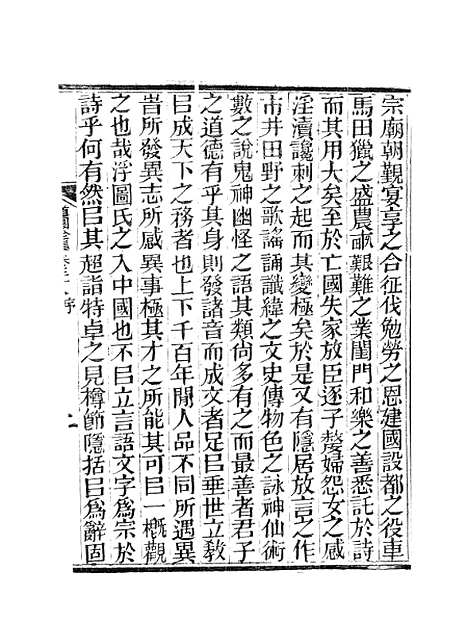 宗廟朝覲宴享之合征伐勉勞之恩建國設都之役車
馬田獵之盛農畝艱難之業閨門和樂之善悉託於詩
而其用大矣至於亡國失家放臣逐子嫠婦怨女之感
淫瀆讒刺之起而其變極矣於是又有隱居放言之作
市井田野之歌謠誦讖緯之文史傳物色之詠神仙術
數之說鬼神幽怪之語其類尙多有之而最善者君子
之道德有乎其身則發諸音而成文者足㠯垂世立敎
㠯成天下之務者也上下千百年閒人品不同所遇異
旹所發異志所感異事極其才之所能其可㠯一槪觀
之也哉浮圖氏之入中國也不㠯立言語文字爲宗於
詩乎何有然㠯其超詣特卓之見樽節隱括㠯爲辭固
道園全集 序